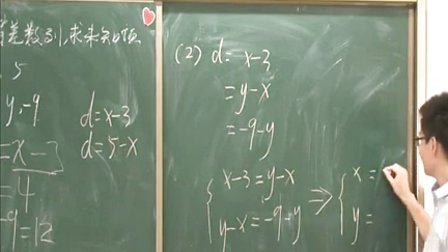 差数列,求未知项
5
y,-9
d=x-3
d=5-x
=x-3
=4
-9=12
(2) d= x-3
= y-x
= -9-y
{ x-3=y-x
y-x=-9-y
⇒ { x=
y=